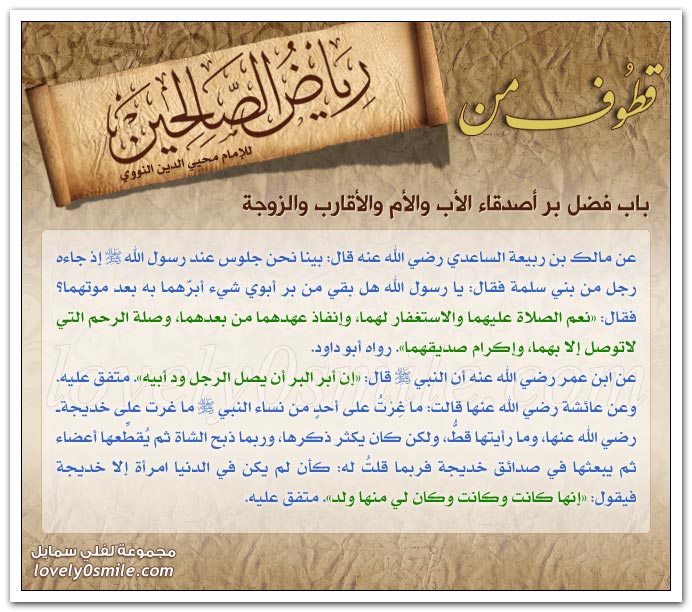 قطوف من
رياض الصالحين
للإمام محيي الدين النووي
باب فضل بر أصدقاء الأب والأم والأقارب والزوجة
عن مالك بن ربيعة الساعدي رضي الله عنه قال: بينا نحن جلوس عند رسول الله ﷺ إذ جاءه
رجل من بني سلمة فقال: يا رسول الله هل بقي من بر أبوي شيء أبرّهما به بعد موتهما؟
فقال: «نعم الصلاة عليهما والاستغفار لهما، وإنفاذ عهدهما من بعدهما، وصلة الرحم التي
لاتوصل إلا بهما، وإكرام صديقهما». رواه أبو داود.
عن ابن عمر رضي الله عنه أن النبي ﷺ قال: «إن أبر البر أن يصل الرجل ود أبيه». متفق عليه.
وعن عائشة رضي الله عنها قالت: ما غِرتُ على أحدٍ من نساء النبي ﷺ ما غرت على خديجة ـ
رضي الله عنها، وما رأيتها قطُّ، ولكن كان يكثر ذكرها، وربما ذبح الشاة ثم يُقطِّعها أعضاء
ثم يبعثها في صدائق خديجة فربما قلتُ له: كأن لم يكن في الدنيا امرأة إلا خديجة
فيقول: «إنها كانت وكانت وكان لي منها ولد». متفق عليه.
lovely0smile.com
مجموعة لفلي سمايل
lovely0smile.com